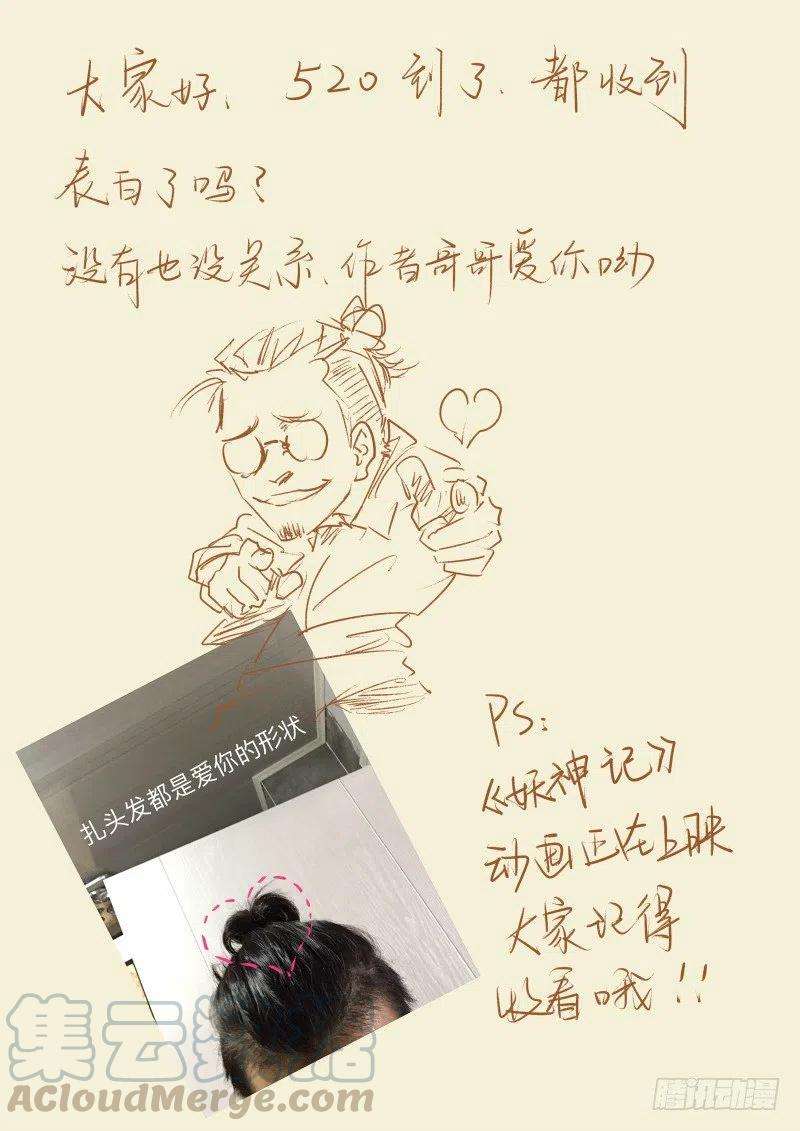 大家好、520到了、都收到
表白了吗？
没有也没关系、作者哥哥爱你呦
扎头发都是爱你的形状
PS：
《妖神记》
动画正在上映
大家记得
收看哦！！
集云数据
ACloudMerge.com
腾讯动漫